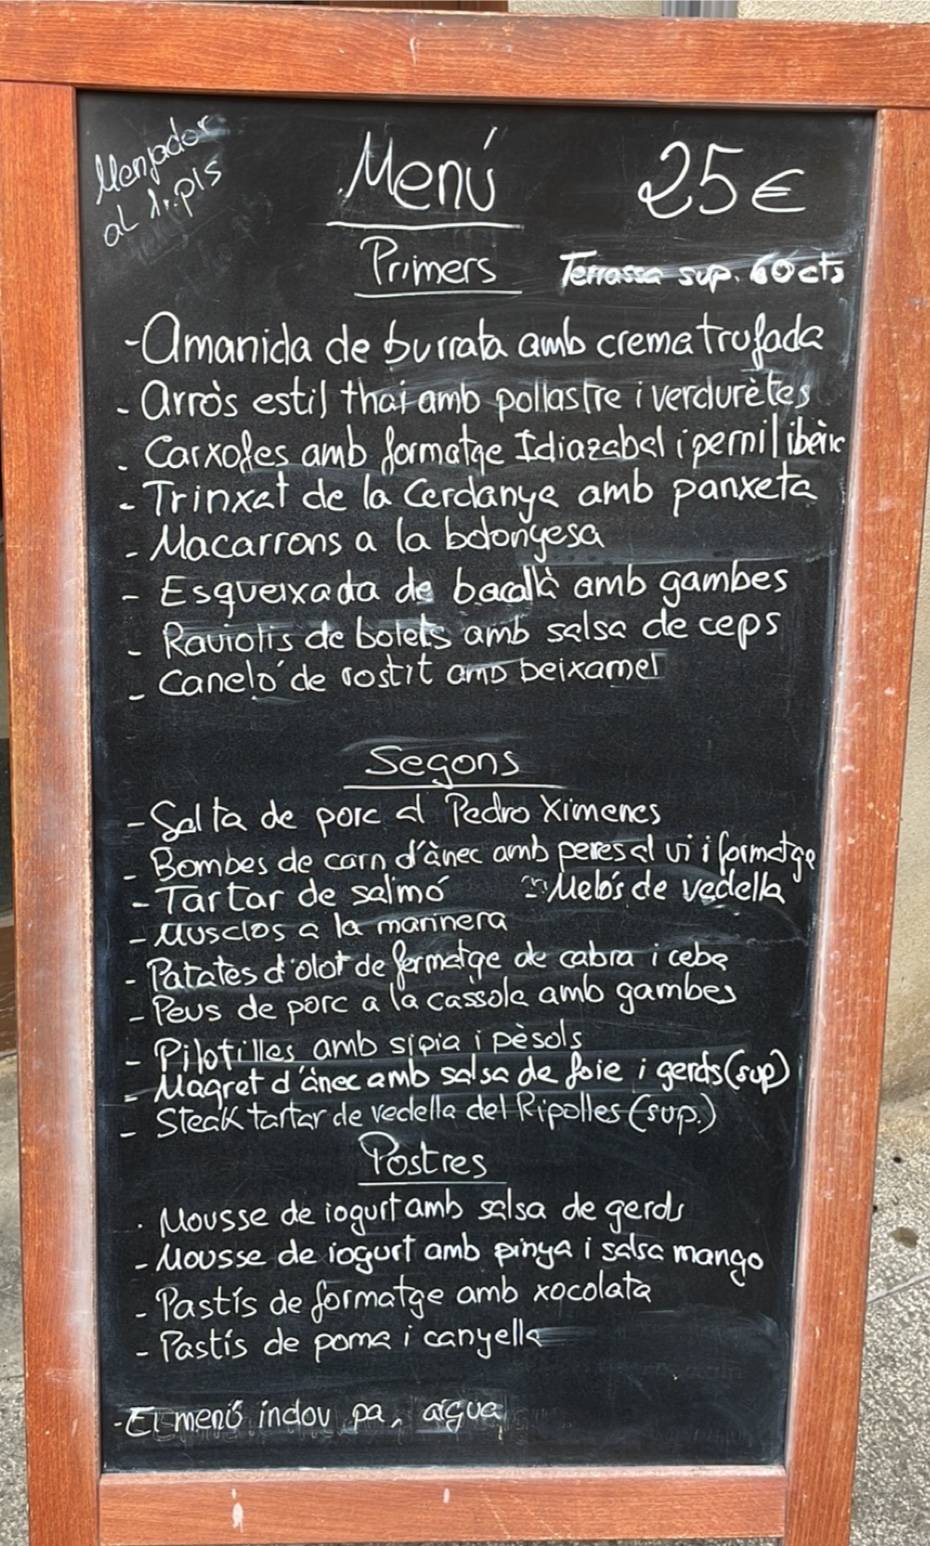 Menjador
al 1r. pis
Menú 25€
Primers
Terrassa sup. 60 cts
- Amanida de burrata amb crema trufada
- Arròs estil thai amb pollastre i verdurètes
- Carxofes amb formatge Idiazabal i pernil ibèric
- Trinxat de la Cerdanya amb panxeta
- Macarrons a la bolonyesa
- Esqueixada de bacallà amb gambes
- Raviolis de bolets amb salsa de ceps
- Caneló de rostit amb beixamel
Segons
- Galta de porc al Pedro Ximenes
- Bombes de carn d'ànec amb peres al vi i formatge
- Tartar de salmó - Melós de vedella
- Musclos a la marinera
- Patates d'olot de formatge de cabra i ceba
- Peus de porc a la cassola amb gambes
- Pilotilles amb sípia i pèsols
- Magret d'ànec amb salsa de foie i gerds (sup)
- Steak tartar de vedella del Ripolles (sup.)
Postres
. Mousse de iogurt amb salsa de gerds
- Mousse de iogurt amb pinya i salsa mango
- Pastís de formatge amb xocolata
- Pastís de poma i canyella
- El menú inclou pa, aigua